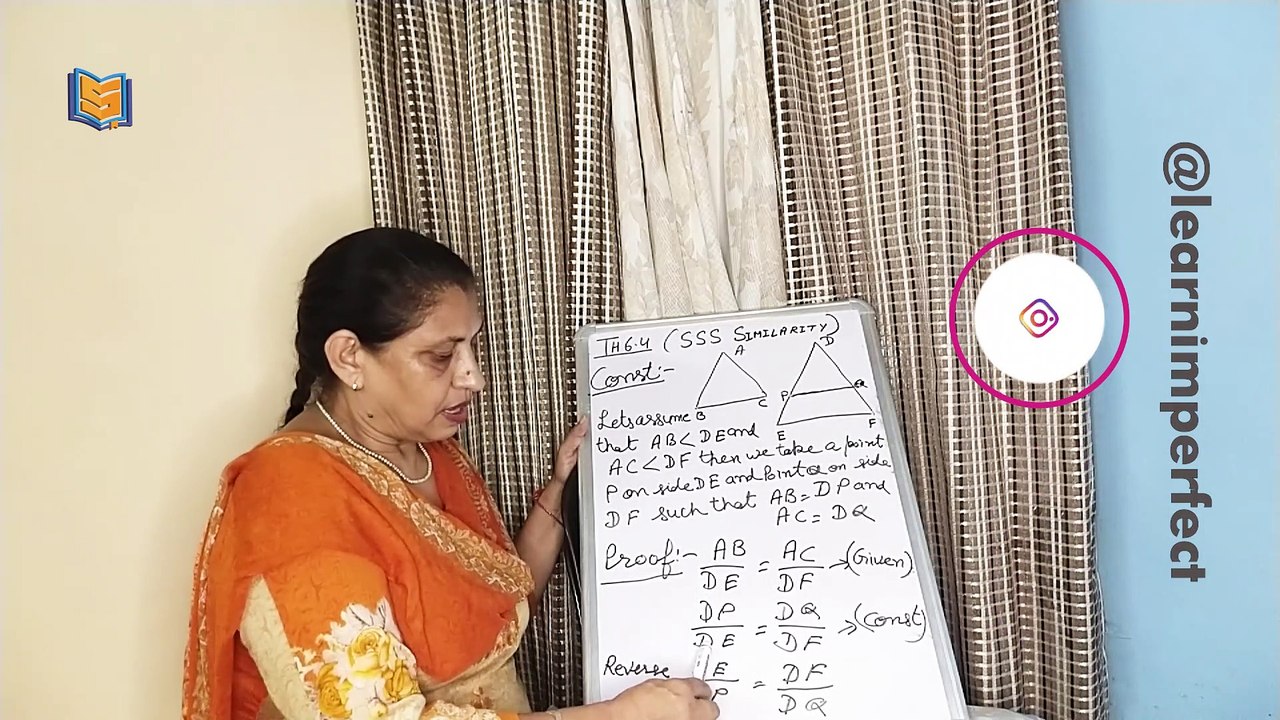 TH 6.4 (SSS SIMILARITY)
Const:-
A
B
C
D
P
Q
E
F
Lets assume
that AB < DE and
AC < DF then we take a point
P on side DE and Point Q on side
DF such that AB = DP and
AC = DQ
Proof:- AB/DE = AC/DF → (Given)
DP/DE = DQ/DF → (Const)
Reverse E/P = DF/DQ
@learnimperfect
S